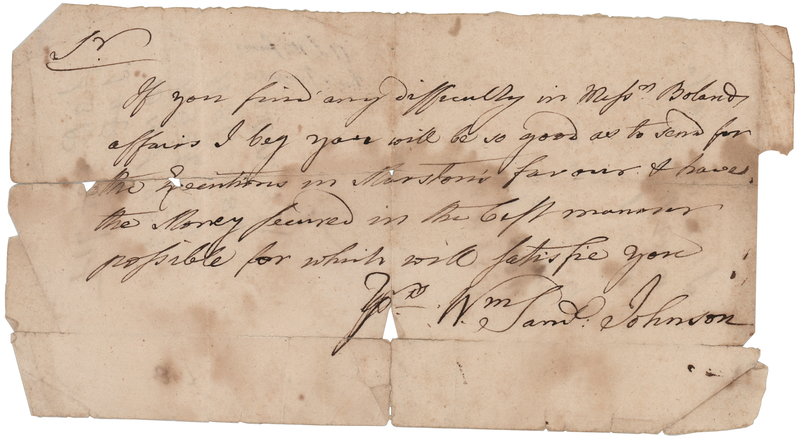 Sr.
If you find any difficulty in Messrs Bolands
affairs I beg you will be so good as to send for
the Executions in Marston's favour & have
the Money secured in the best manner
possible for which will satisfie you
Yrs. Wm Saml. Johnson